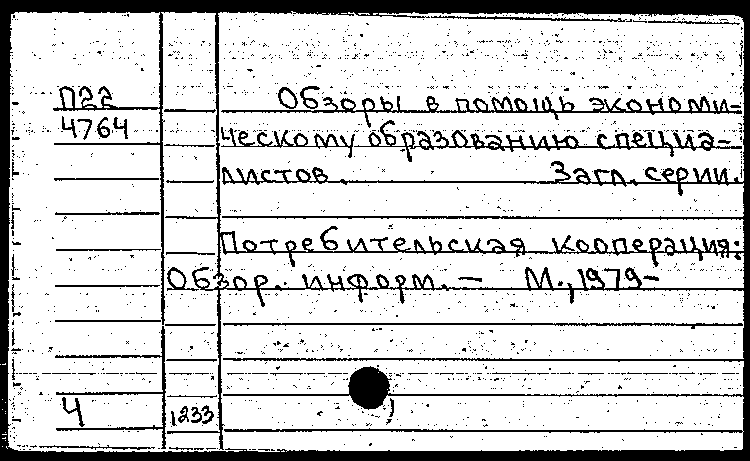 П22
4764
Обзоры в помощь экономи-
ческому образованию специа-
листов. Загл. серии.
Потребительская кооперация:
Обзор. информ. – М., 1979–
Ч 1233